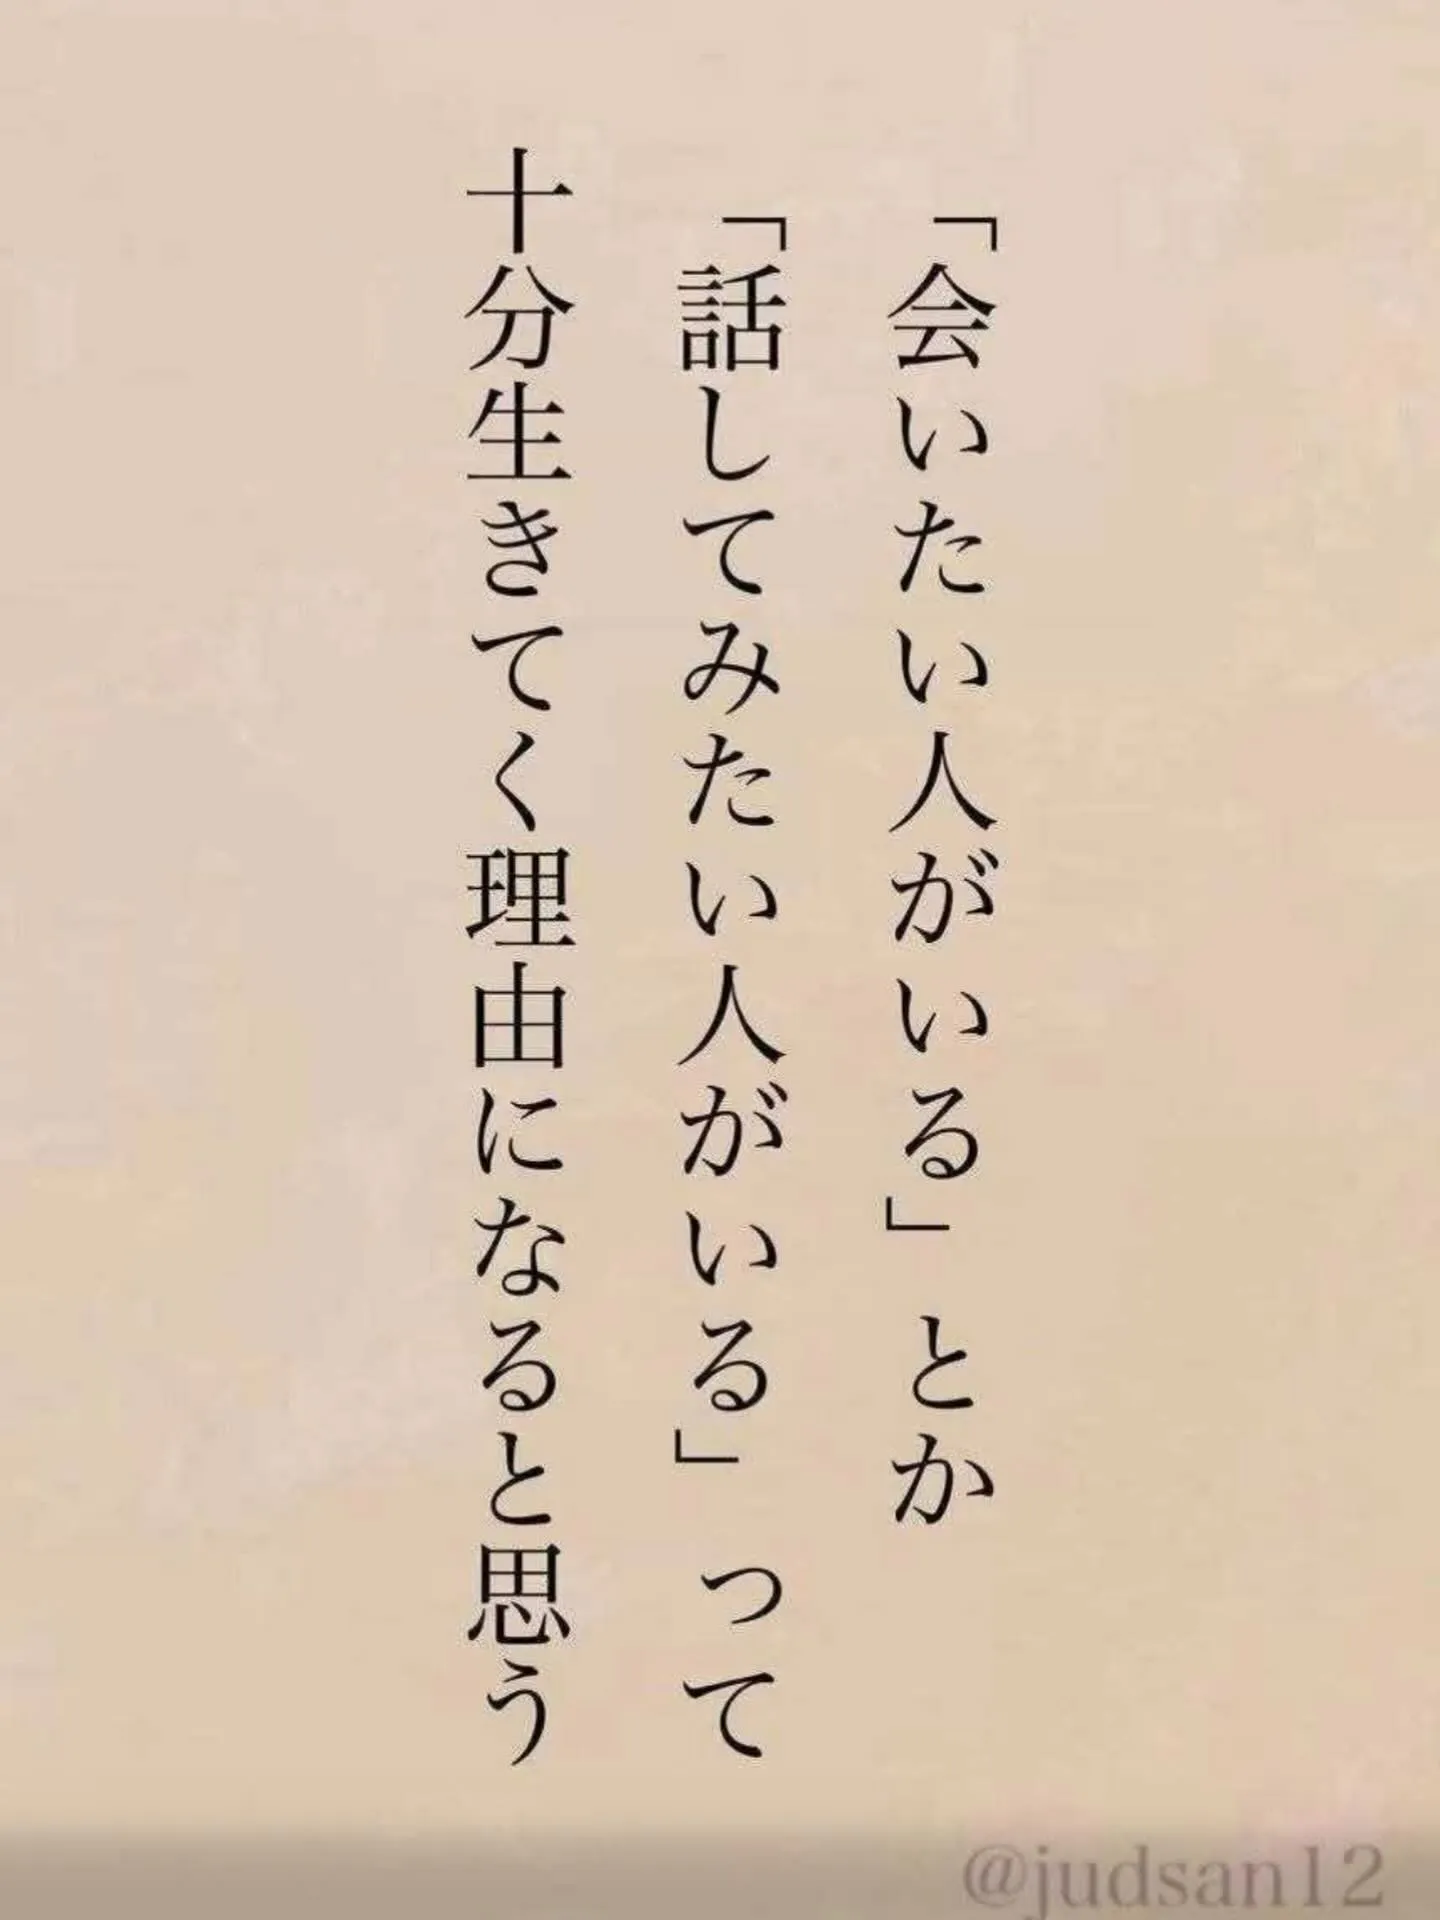 「会いたい人がいる」とか
「話してみたい人がいる」って
十分生きてく理由になると思う
@judsan12